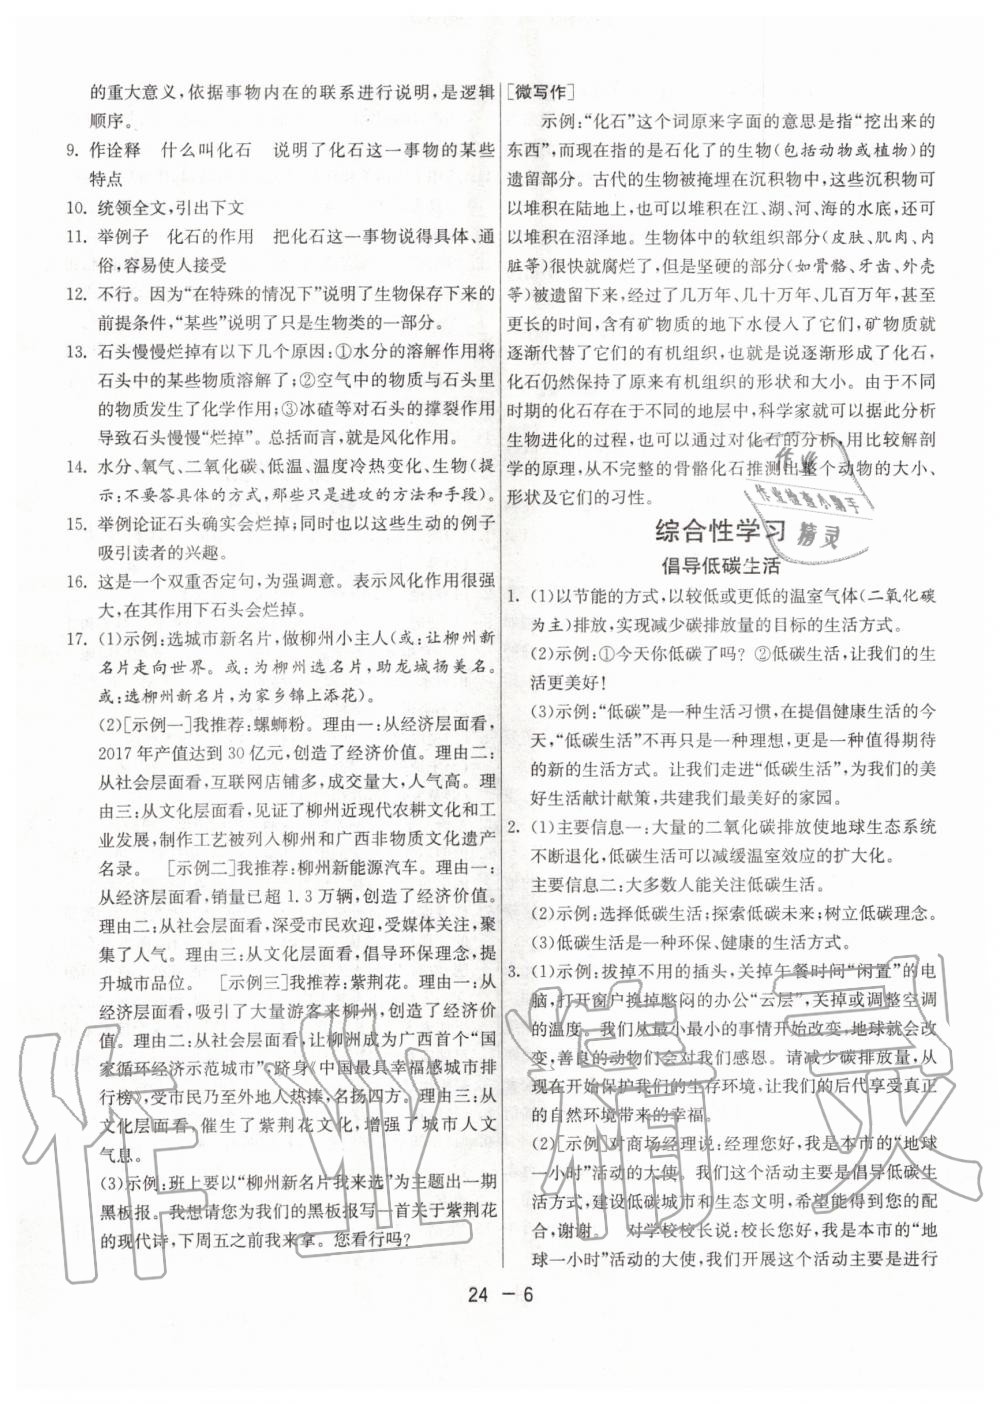 的重大意义,依据事物内在的联系进行说明,是逻辑
顺序。
9. 作诠释 什么叫化石 说明了化石这一事物的某些
特点
10. 统领全文,引出下文
11. 举例子 化石的作用 把化石这一事物说得具体、通
俗,容易使人接受
12. 不行。因为“在特殊的情况下”说明了生物保存下来的
前提条件,“某些”说明了只是生物类的一部分。
13. 石头慢慢烂掉有以下几个原因:①水分的溶解作用将
石头中的某些物质溶解了;②空气中的物质与石头里
的物质发生了化学作用;③冰碴等对石头的撑裂作用
导致石头慢慢“烂掉”。总括而言,就是风化作用。
14. 水分、氧气、二氧化碳、低温、温度冷热变化、生物(提
示:不要答具体的方式,那些只是进攻的方法和手段)。
15. 举例论证石头确实会烂掉;同时也以这些生动的例子
吸引读者的兴趣。
16. 这是一个双重否定句,为强调意。表示风化作用很强
大,在其作用下石头会烂掉。
17. (1)示例:选城市新名片,做柳州小主人(或:让柳州新
名片走向世界。或:为柳州选名片,助龙城扬美名。
或:选柳州新名片,为家乡锦上添花)。
(2)[示例一]我推荐:螺蛳粉。理由一:从经济层面看,
2017年产值达到30亿元,创造了经济价值。理由二:
从社会层面看,互联网店铺多,成交量大,人气高。理
由三:从文化层面看,见证了柳州近现代农耕文化和工
业发展,制作工艺被列入柳州和广西非物质文化遗产
名录。 [示例二]我推荐:柳州新能源汽车。理由一:
从经济层面看,销量已超1.3万辆,创造了经济价值。
理由二:从社会层面看,深受市民欢迎,受媒体关注,聚
集了人气。理由三:从文化层面看,倡导环保理念,提
升城市品位。 [示例三]我推荐:紫荆花。理由一:从
经济层面看,吸引了大量游客来柳州,创造了经济价
值。理由二:从社会层面看,让柳洲成为广西首个“国
家循环经济示范城市”,跻身《中国最具幸福感城市排
行榜》,受市民乃至外地人热捧,名扬四方。理由三:从
文化层面看,催生了紫荆花文化,增强了城市人文
气息。
(3)示例:班上要以“柳州新名片我来选”为主题出一期
黑板报。我想请您为我们的黑板报写一首关于紫荆花
的现代诗,下周五之前我来拿。您看行吗?
[微写作]
示例:“化石”这个词原来字面的意思是指“挖出来的
东西”,而现在指的是石化了的生物(包括动物或植物)的
遗留部分。古代的生物被掩埋在沉积物中,这些沉积物可
以堆积在陆地上,也可以堆积在江、湖、河、海的水底,还可
以堆积在沼泽地。生物体中的软组织部分(皮肤、肌肉、内
脏等)很快就腐烂了,但是坚硬的部分(如骨骼、牙齿、外壳
等)被沉积物掩埋,经过了几万年、几十万年、几百万年,甚至
更长的时间,含有矿物质的地下水侵入了它们,矿物质就
逐渐代替了它们的有机组织,也就是说逐渐形成了化石,
化石仍然保持了原来有机组织的形状和大小。由于不同
时期的化石存在于不同的地层中,科学家就可以据此分析
生物进化的过程,也可以通过对化石的分析,用比较解剖
学的原理,从不完整的骨骼化石推测出整个动物的大小、
形状及它们的习性。
综合性学习
倡导低碳生活
1. (1)以节能的方式,以较低或更低的温室气体(二氧化碳
为主)排放,实现减少碳排放量的目标的生活方式。
(2)示例:①今天你低碳了吗? ②低碳生活,让我们的生
活更美好!
(3)示例:“低碳”是一种生活习惯,在提倡健康生活的今
天,“低碳生活”不再只是一种理想,更是一种值得期待
的新的生活方式。让我们走进“低碳生活”,为我们的美
好生活献计献策,共建我们最美好的家园。
2. (1)主要信息一:大量的二氧化碳排放使地球生态系统
不断退化,低碳生活可以减缓温室效应的扩大化。
主要信息二:大多数人能关注低碳生活。
(2)示例:选择低碳生活;探索低碳未来;树立低碳理念。
(3)低碳生活是一种环保、健康的生活方式。
3. (1)示例:拔掉不用的插头,关掉午餐时间“闲置”的电
脑,打开窗户换掉憋闷的办公“云层”,关掉或调整空调
的温度。我们从最小最小的事情开始改变,地球就会改
变,善良的动物们会对我们感恩。请减少碳排放量,从
现在开始保护我们的生存环境,让我们的后代享受真正
的自然环境带来的幸福。
(2)[示例]对商场经理说:经理您好,我是本市的“地球
一小时”活动的大使。我们这个活动主要是倡导低碳生
活方式,建设低碳城市和生态文明,希望能得到您的配
合,谢谢。 对学校校长说:校长您好,我是本市的“地
球一小时”活动的大使,我们开展这个活动主要是进行
24 － 6
作业
作业检查小帮手
精灵
作业精灵